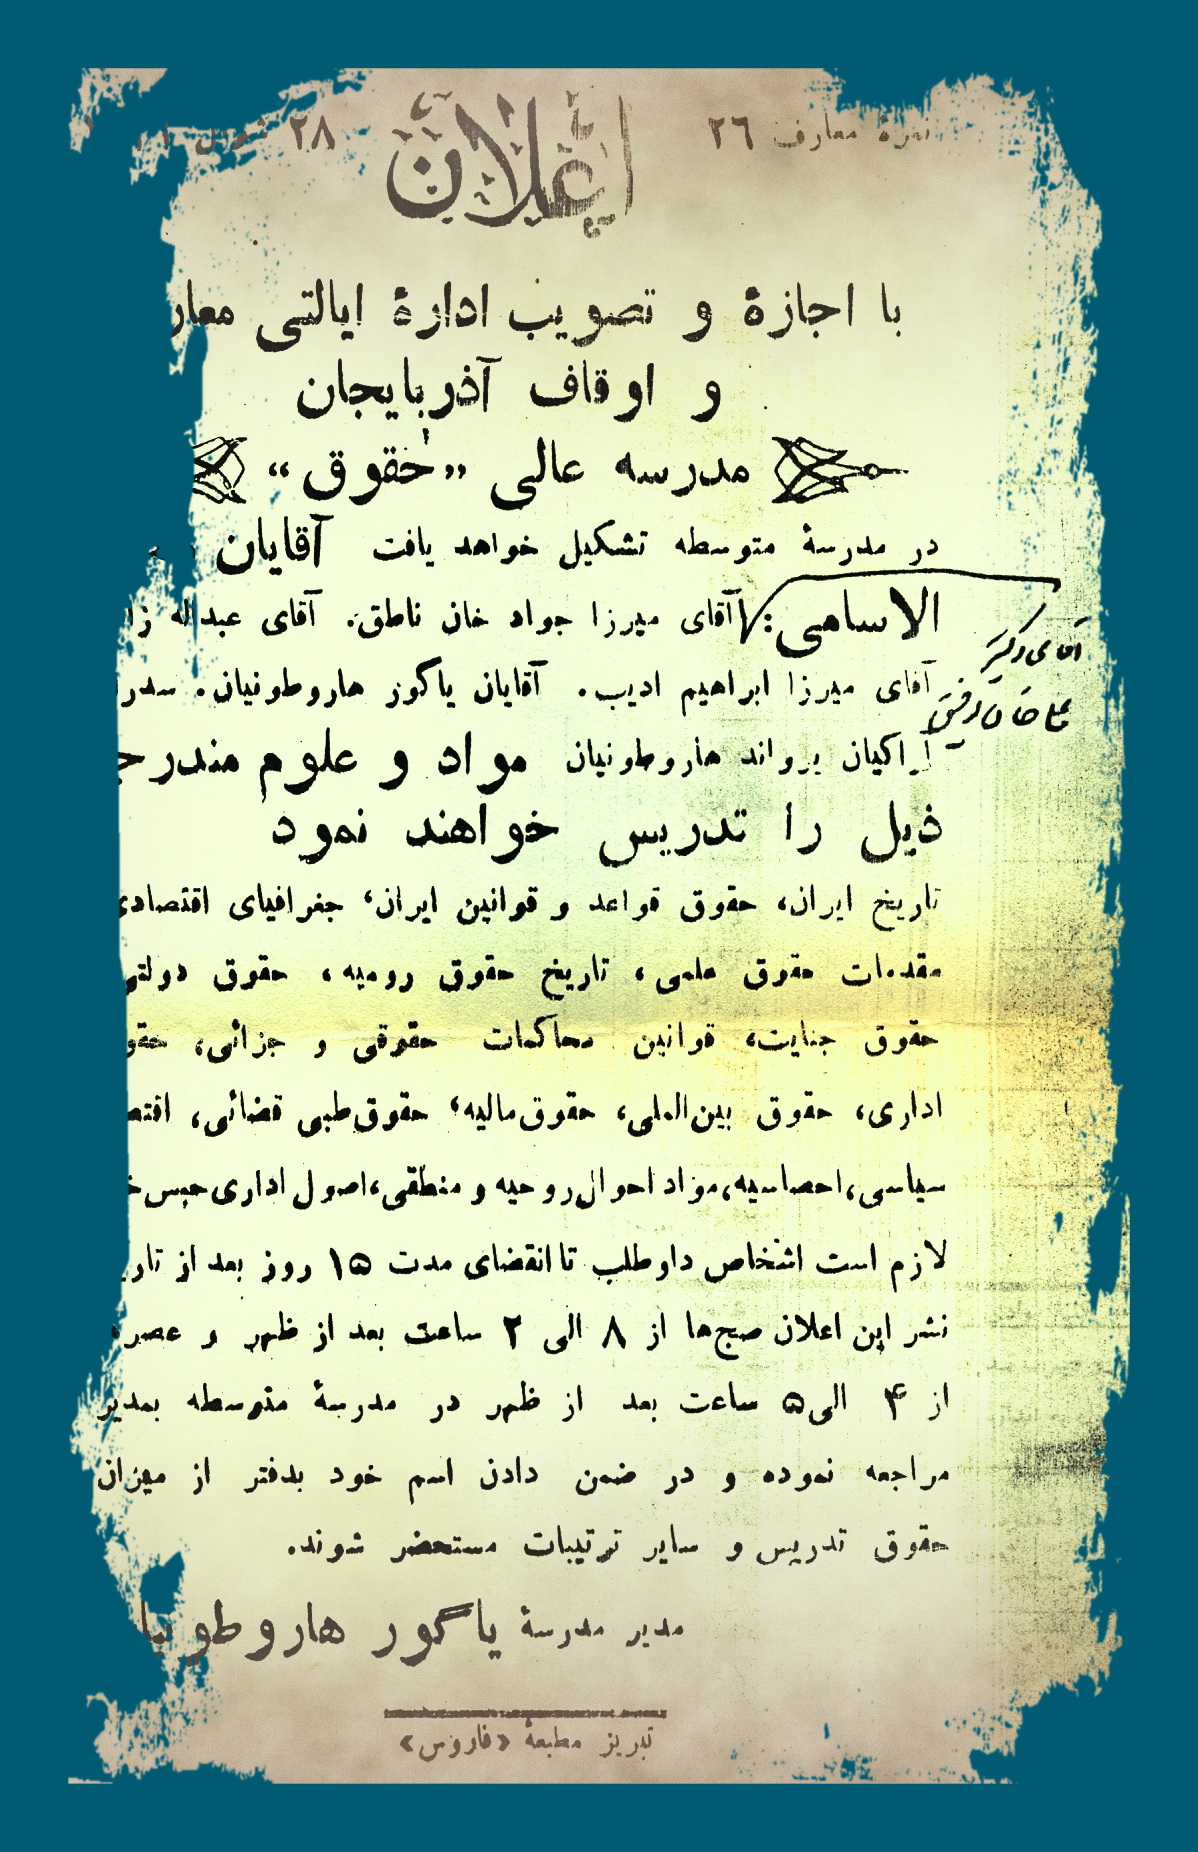 نمرهٔ معارف ٢٦
اعلان
٢٨ شوال
با اجازهٔ و تصویب ادارهٔ ایالتی معار
و اوقاف آذربایجان
مدرسه عالی «حقوق»
در مدرسهٔ متوسطه تشکیل خواهد یافت آقایان
الاسامی: آقای میرزا جواد خان ناطق. آقای عبداله زا
آقای دکتر
علیخان رفیق
آقای میرزا ابراهیم ادیب. آقایان یاکور هاروطونیان. سدر
اراکیان یرواند هاروطونیان مواد و علوم مندرج
ذیل را تدریس خواهند نمود
تاریخ ایران، حقوق قواعد و قوانین ایران، جغرافیای اقتصادی
مقدمات حقوق علمی، تاریخ حقوق رومیه، حقوق دولتی
حقوق جنایت، قوانین محاکمات حقوقی و جزائی، حقو
اداری، حقوق بین‌المللی، حقوق مالیه، حقوق طبی قضائی، اقتص
سیاسی، احصاسیه، مواد احوال روحیه و منطقی، اصول اداری حبس خ
لازم است اشخاص داوطلب تا انقضای مدت ١٥ روز بعد از تار
نشر این اعلان صبح‌ها از ٨ الی ٢ ساعت بعد از ظهر و عصر
از ۴ الی ۵ ساعت بعد از ظهر در مدرسهٔ متوسطه بمدیر
مراجعه نموده و در ضمن دادن اسم خود بدفتر از میزان
حقوق تدریس و سایر ترتیبات مستحضر شوند.
مدیر مدرسهٔ یاگور هاروطونیا
تبریز مطبعهٔ «فاروس»